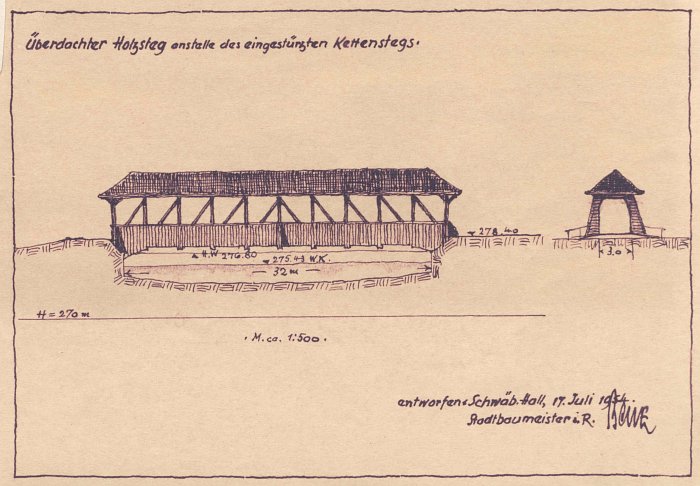 Überdachter Holzsteg anstelle des eingestürzten Kettenstegs.
278.40
H.W 276.80
275.43 W.K.
32 m
3.0
H = 270 m
. M. ca. 1:500 .
entworfen: Schwäb. Hall, 17. Juli 1954.
Stadtbaumeister i. R.